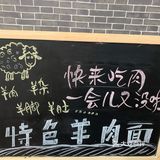 快来吃肉
一会儿又没啦
羊肉 羊杂
羊脚 羊肚
特色羊肉面